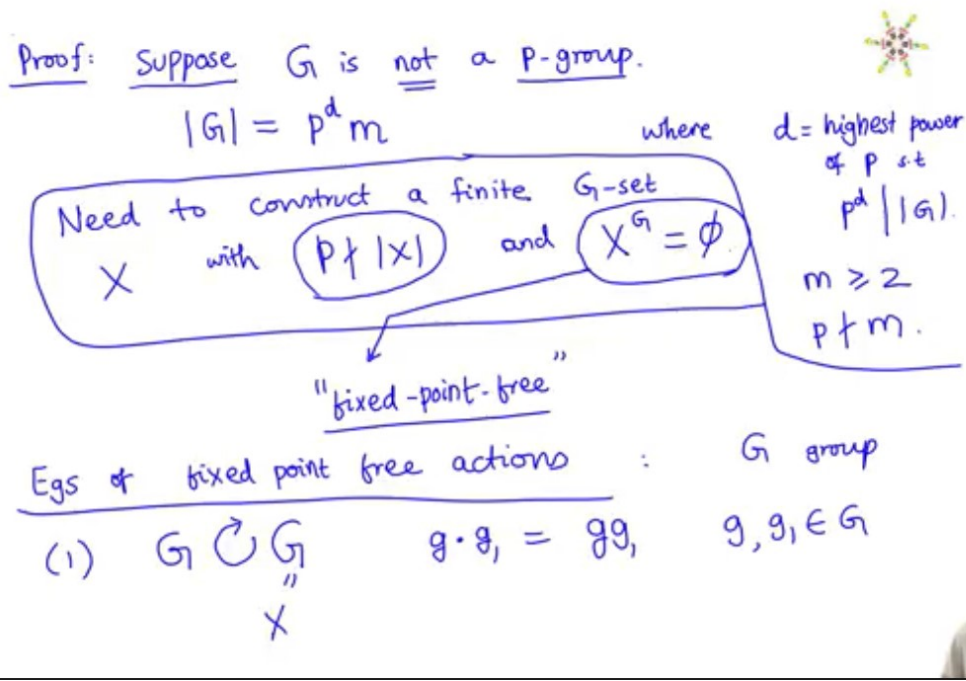 Proof: Suppose G is not a p-group.
|G| = p^d m where d = highest power
of p s.t
p^d | |G|.
m ≥ 2
p ∤ m.
Need to construct a finite G-set
X with p ∤ |X| and X^G = ∅.
"fixed-point-free"
Egs of fixed point free actions : G group
(1) G ↻ G g·g₁ = gg₁ g, g₁ ∈ G
"
X